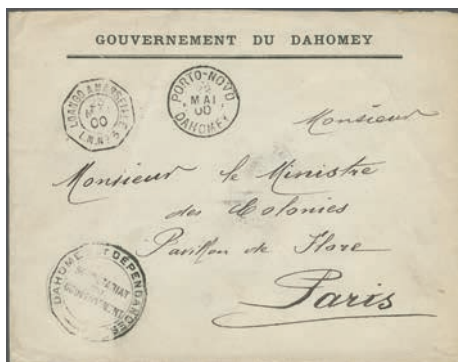 GOUVERNEMENT DU DAHOMEY
LOANGO A MARSEILLE
00
L.N. Nº 5
PORTO-NOVO
MAI
00
DAHOMEY
Monsieur
Monsieur le Ministre
des Colonies
Pavillon de Flore
Paris
DAHOMEY ET DÉPENDANCES
SECRÉTARIAT
DU
GOUVERNEMENT